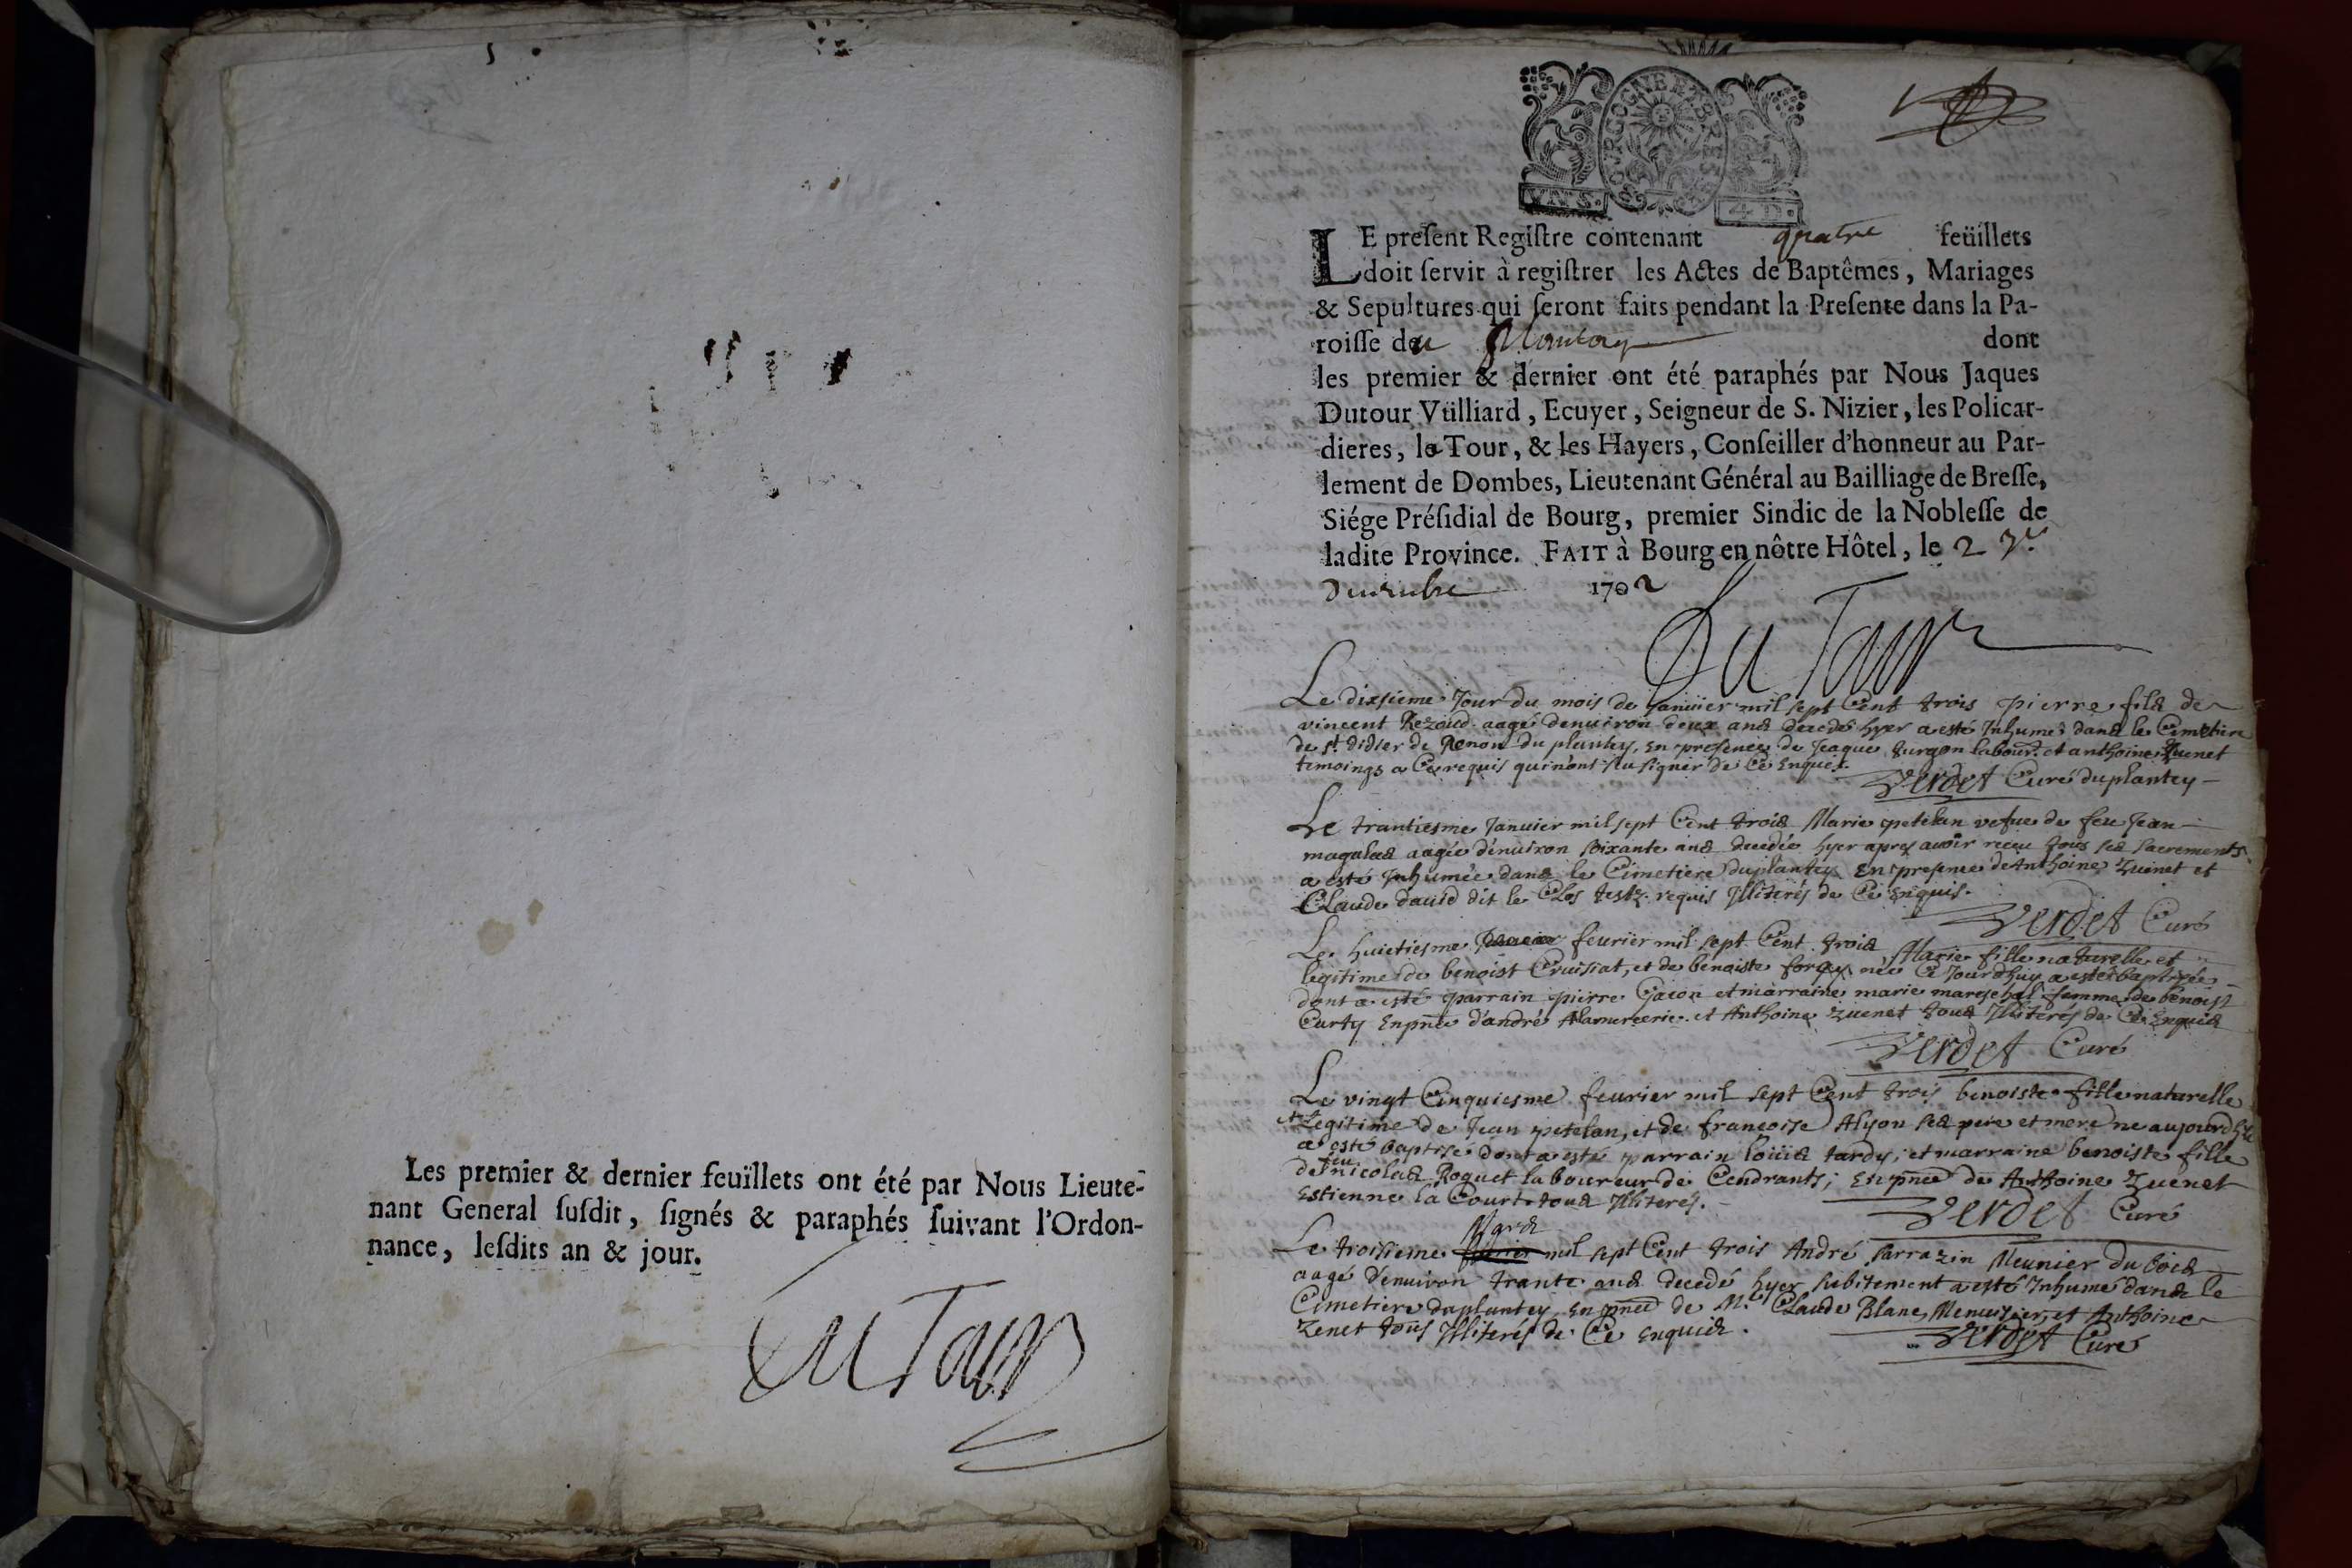 Les premier & dernier feuïllets ont été par Nous Lieute-
nant General ſuſdit, ſignés & paraphés ſuivant l'Ordon-
nance, leſdits an & jour.
Du Tour
BOURGOGNE BRESSE
VN S. 4 D.
LE preſent Regiſtre contenant quatre feüillets
doit ſervir à regiſtrer les Actes de Baptêmes, Mariages
& Sepultures qui ſeront faits pendant la Preſente dans la Pa-
roiſſe du Plantay dont
les premier & dernier ont été paraphés par Nous Jaques
Dutour Vülliard, Ecuyer, Seigneur de S. Nizier, les Policar-
dieres, la Tour, & les Hayers, Conſeiller d'honneur au Par-
lement de Dombes, Lieutenant Général au Bailliage de Breſſe,
Siége Préſidial de Bourg, premier Sindic de la Nobleſſe de
ladite Province. FAIT à Bourg en nôtre Hôtel, le 2
1702
Du Tour
Le dixsieme Jour du mois de Janvier mil sept Cent trois pierre fils de
vincent Rezoud aagé denuiron deux ans decedé hyer a esté Inhumé dans le Cimetiere
de st. didier de Renon du plantey, En presence de Jeaque turgon labour. et anthoine Zuenet
temoings a Ce requis quinont su signer de Ce Enquis.
Verdet Curé duplantey
Le trantiesme Januier mil sept Cent trois Marie petelan vefue de feu Jean
magulas aagée d'enuiron soixante ans decedée hyer apres auoir receu tous ses sacrements
a esté Inhumée dans le Cimetiere duplantey En presence de Anthoine Zuenet et
Claude dauid dit le Clos testz. requis Illiterés de Ce enquis.
Verdet Curé
Le huictiesme feurier mil sept Cent trois Marie fille naturelle et
legitime de benoist Cruisiat, et de benoiste forey née Ce Jourdhuy a esté baptizée
dont a esté parrain pierre Gacon et marraine marie mareschal femme de benoist
Curty Enpnce d'andré Alamercerie et Anthoine zuenet tous Illiterés de Ce Enquis
Verdet Curé
Le vingt Cinquiesme feurier mil sept Cent trois benoiste fille naturelle
et Legitime de Jean petelan, et de francoise Alyon ses pere et mere ne aujourdhuy
a esté baptisé dont a esté parrain loüis tardy, et marraine benoiste fille
de feu nicolas Roquet laboureur de Cendrants; Enpnce de Anthoine Zuenet
Estienne la Court tous Illiterés.
Verdet Curé
Le troisieme Mars mil sept Cent trois André Sarrazin Meunier du bois
aagé d'enuiron trante ans decedé hyer subitement a esté Inhumé dans le
Cimetiere duplantey Enpnce de Me. Claude Blanc Menuisier, et Anthoine
Zenet tous Illiterés de Ce Enquis.
Verdet Curé